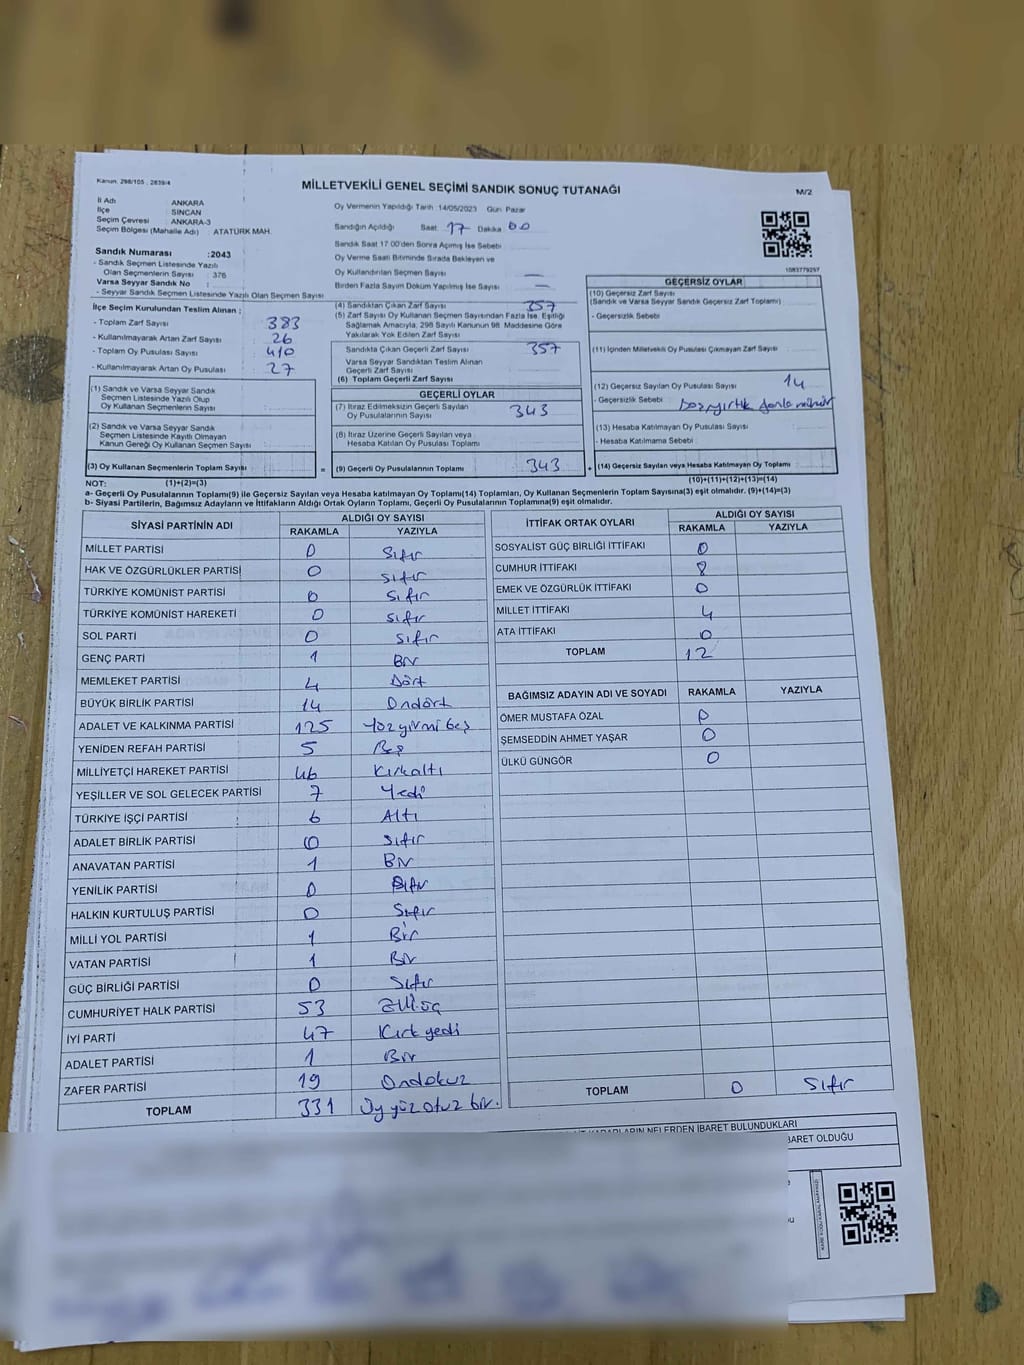 Kanun: 298/105 , 2839/4
MİLLETVEKİLİ GENEL SEÇİMİ SANDIK SONUÇ TUTANAĞI
M/2
İl Adı ANKARA
İlçe SİNCAN
Seçim Çevresi ANKARA-3
Seçim Bölgesi (Mahalle Adı) : ATATÜRK MAH.
Oy Vermenin Yapıldığı Tarih 14/05/2023 Gün Pazar
Sandığın Açıldığı Saat 17 Dakika 00
Sandık Saat 17 00'den Sonra Açılmış İse Sebebi
Oy Verme Saati Bitiminde Sırada Bekleyen ve
Oy Kullandırılan Seçmen Sayısı —
Birden Fazla Sayım Döküm Yapılmış İse Sayısı —
Sandık Numarası :2043
- Sandık Seçmen Listesinde Yazılı
Olan Seçmenlerin Sayısı : 376
Varsa Seyyar Sandık No :
- Seyyar Sandık Seçmen Listesinde Yazılı Olan Seçmen Sayısı
İlçe Seçim Kurulundan Teslim Alınan :
- Toplam Zarf Sayısı 383
- Kullanılmayarak Artan Zarf Sayısı 26
- Toplam Oy Pusulası Sayısı 410
- Kullanılmayarak Artan Oy Pusulası 27
(1) Sandık ve Varsa Seyyar Sandık
Seçmen Listesinde Yazılı Olup
Oy Kullanan Seçmenlerin Sayısı
(2) Sandık ve Varsa Seyyar Sandık
Seçmen Listesinde Kayıtlı Olmayan
Kanun Gereği Oy Kullanan Seçmen Sayısı
(3) Oy Kullanan Seçmenlerin Toplam Sayısı
(4) Sandıktan Çıkan Zarf Sayısı 357
(5) Zarf Sayısı Oy Kullanan Seçmen Sayısından Fazla İse, Eşitliği
Sağlamak Amacıyla, 298 Sayılı Kanunun 98. Maddesine Göre
Yakılarak Yok Edilen Zarf Sayısı
Sandıkta Çıkan Geçerli Zarf Sayısı 357
Varsa Seyyar Sandıktan Teslim Alınan
Geçerli Zarf Sayısı
(6) Toplam Geçerli Zarf Sayısı
GEÇERLİ OYLAR
(7) İtiraz Edilmeksizin Geçerli Sayılan
Oy Pusulalarının Sayısı 343
(8) İtiraz Üzerine Geçerli Sayılan veya
Hesaba Katılan Oy Pusulası Toplamı
= (9) Geçerli Oy Pusulalarının Toplamı 343
1083779297
GEÇERSİZ OYLAR
(10) Geçersiz Zarf Sayısı
(Sandık ve Varsa Seyyar Sandık Geçersiz Zarf Toplamı)
- Geçersizlik Sebebi
(11) İçinden Milletvekili Oy Pusulası Çıkmayan Zarf Sayısı
(12) Geçersiz Sayılan Oy Pusulası Sayısı 14
- Geçersizlik Sebebi
(13) Hesaba Katılmayan Oy Pusulası Sayısı
- Hesaba Katılmama Sebebi
+ (14) Geçersiz Sayılan veya Hesaba Katılmayan Oy Toplamı
NOT: (1)+(2)=(3) (10)+(11)+(12)+(13)=(14)
a- Geçerli Oy Pusulalarının Toplamı(9) ile Geçersiz Sayılan veya Hesaba katılmayan Oy Toplamı(14) Toplamları, Oy Kullanan Seçmenlerin Toplam Sayısına(3) eşit olmalıdır. (9)+(14)=(3)
b- Siyasi Partilerin, Bağımsız Adayların ve İttifakların Aldığı Ortak Oyların Toplamı, Geçerli Oy Pusulalarının Toplamına(9) eşit olmalıdır.
SİYASİ PARTİNİN ADI ALDIĞI OY SAYISI
RAKAMLA YAZIYLA
MİLLET PARTİSİ 0 Sıfır
HAK VE ÖZGÜRLÜKLER PARTİSİ 0 Sıfır
TÜRKİYE KOMÜNİST PARTİSİ 0 Sıfır
TÜRKİYE KOMÜNİST HAREKETİ 0 Sıfır
SOL PARTİ 0 Sıfır
GENÇ PARTİ 1 Bir
MEMLEKET PARTİSİ 4 Dört
BÜYÜK BİRLİK PARTİSİ 14 Ondört
ADALET VE KALKINMA PARTİSİ 125 Yüzyirmi beş
YENİDEN REFAH PARTİSİ 5 Beş
MİLLİYETÇİ HAREKET PARTİSİ 46 Kırkaltı
YEŞİLLER VE SOL GELECEK PARTİSİ 7 Yedi
TÜRKİYE İŞÇİ PARTİSİ 6 Altı
ADALET BİRLİK PARTİSİ 0 Sıfır
ANAVATAN PARTİSİ 1 Bir
YENİLİK PARTİSİ 0 Sıfır
HALKIN KURTULUŞ PARTİSİ 0 Sıfır
MİLLİ YOL PARTİSİ 1 Bir
VATAN PARTİSİ 1 Bir
GÜÇ BİRLİĞİ PARTİSİ 0 Sıfır
CUMHURİYET HALK PARTİSİ 53 Elliüç
İYİ PARTİ 47 Kırk yedi
ADALET PARTİSİ 1 Bir
ZAFER PARTİSİ 19 Ondokuz
TOPLAM 331 Üçyüz otuz bir.
İTTİFAK ORTAK OYLARI ALDIĞI OY SAYISI
RAKAMLA YAZIYLA
SOSYALİST GÜÇ BİRLİĞİ İTTİFAKI 0
CUMHUR İTTİFAKI 8
EMEK VE ÖZGÜRLÜK İTTİFAKI 0
MİLLET İTTİFAKI 4
ATA İTTİFAKI 0
TOPLAM 12
BAĞIMSIZ ADAYIN ADI VE SOYADI RAKAMLA YAZIYLA
ÖMER MUSTAFA ÖZAL 0
ŞEMSEDDİN AHMET YAŞAR 0
ÜLKÜ GÜNGÖR 0
TOPLAM 0 Sıfır
KARARLARIN NELERDEN İBARET BULUNDUKLARI
İBARET OLDUĞU